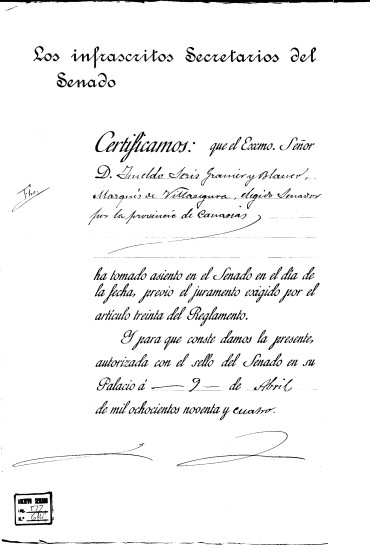 Los infrascritos Secretarios del
Senado
Certificamos: que el Excmo. Señor
D. Imeldo Seris Granier y Blanco,
Marqués de Villasegura, elegido Senador
por la provincia de Canarias
ha tomado asiento en el Senado en el día de
la fecha, previo el juramento exigido por el
artículo treinta del Reglamento.
Y para que conste damos la presente,
autorizada con el sello del Senado en su
Palacio á — 9 — de Abril
de mil ochocientos noventa y cuatro.
ARCHIVO SENADO